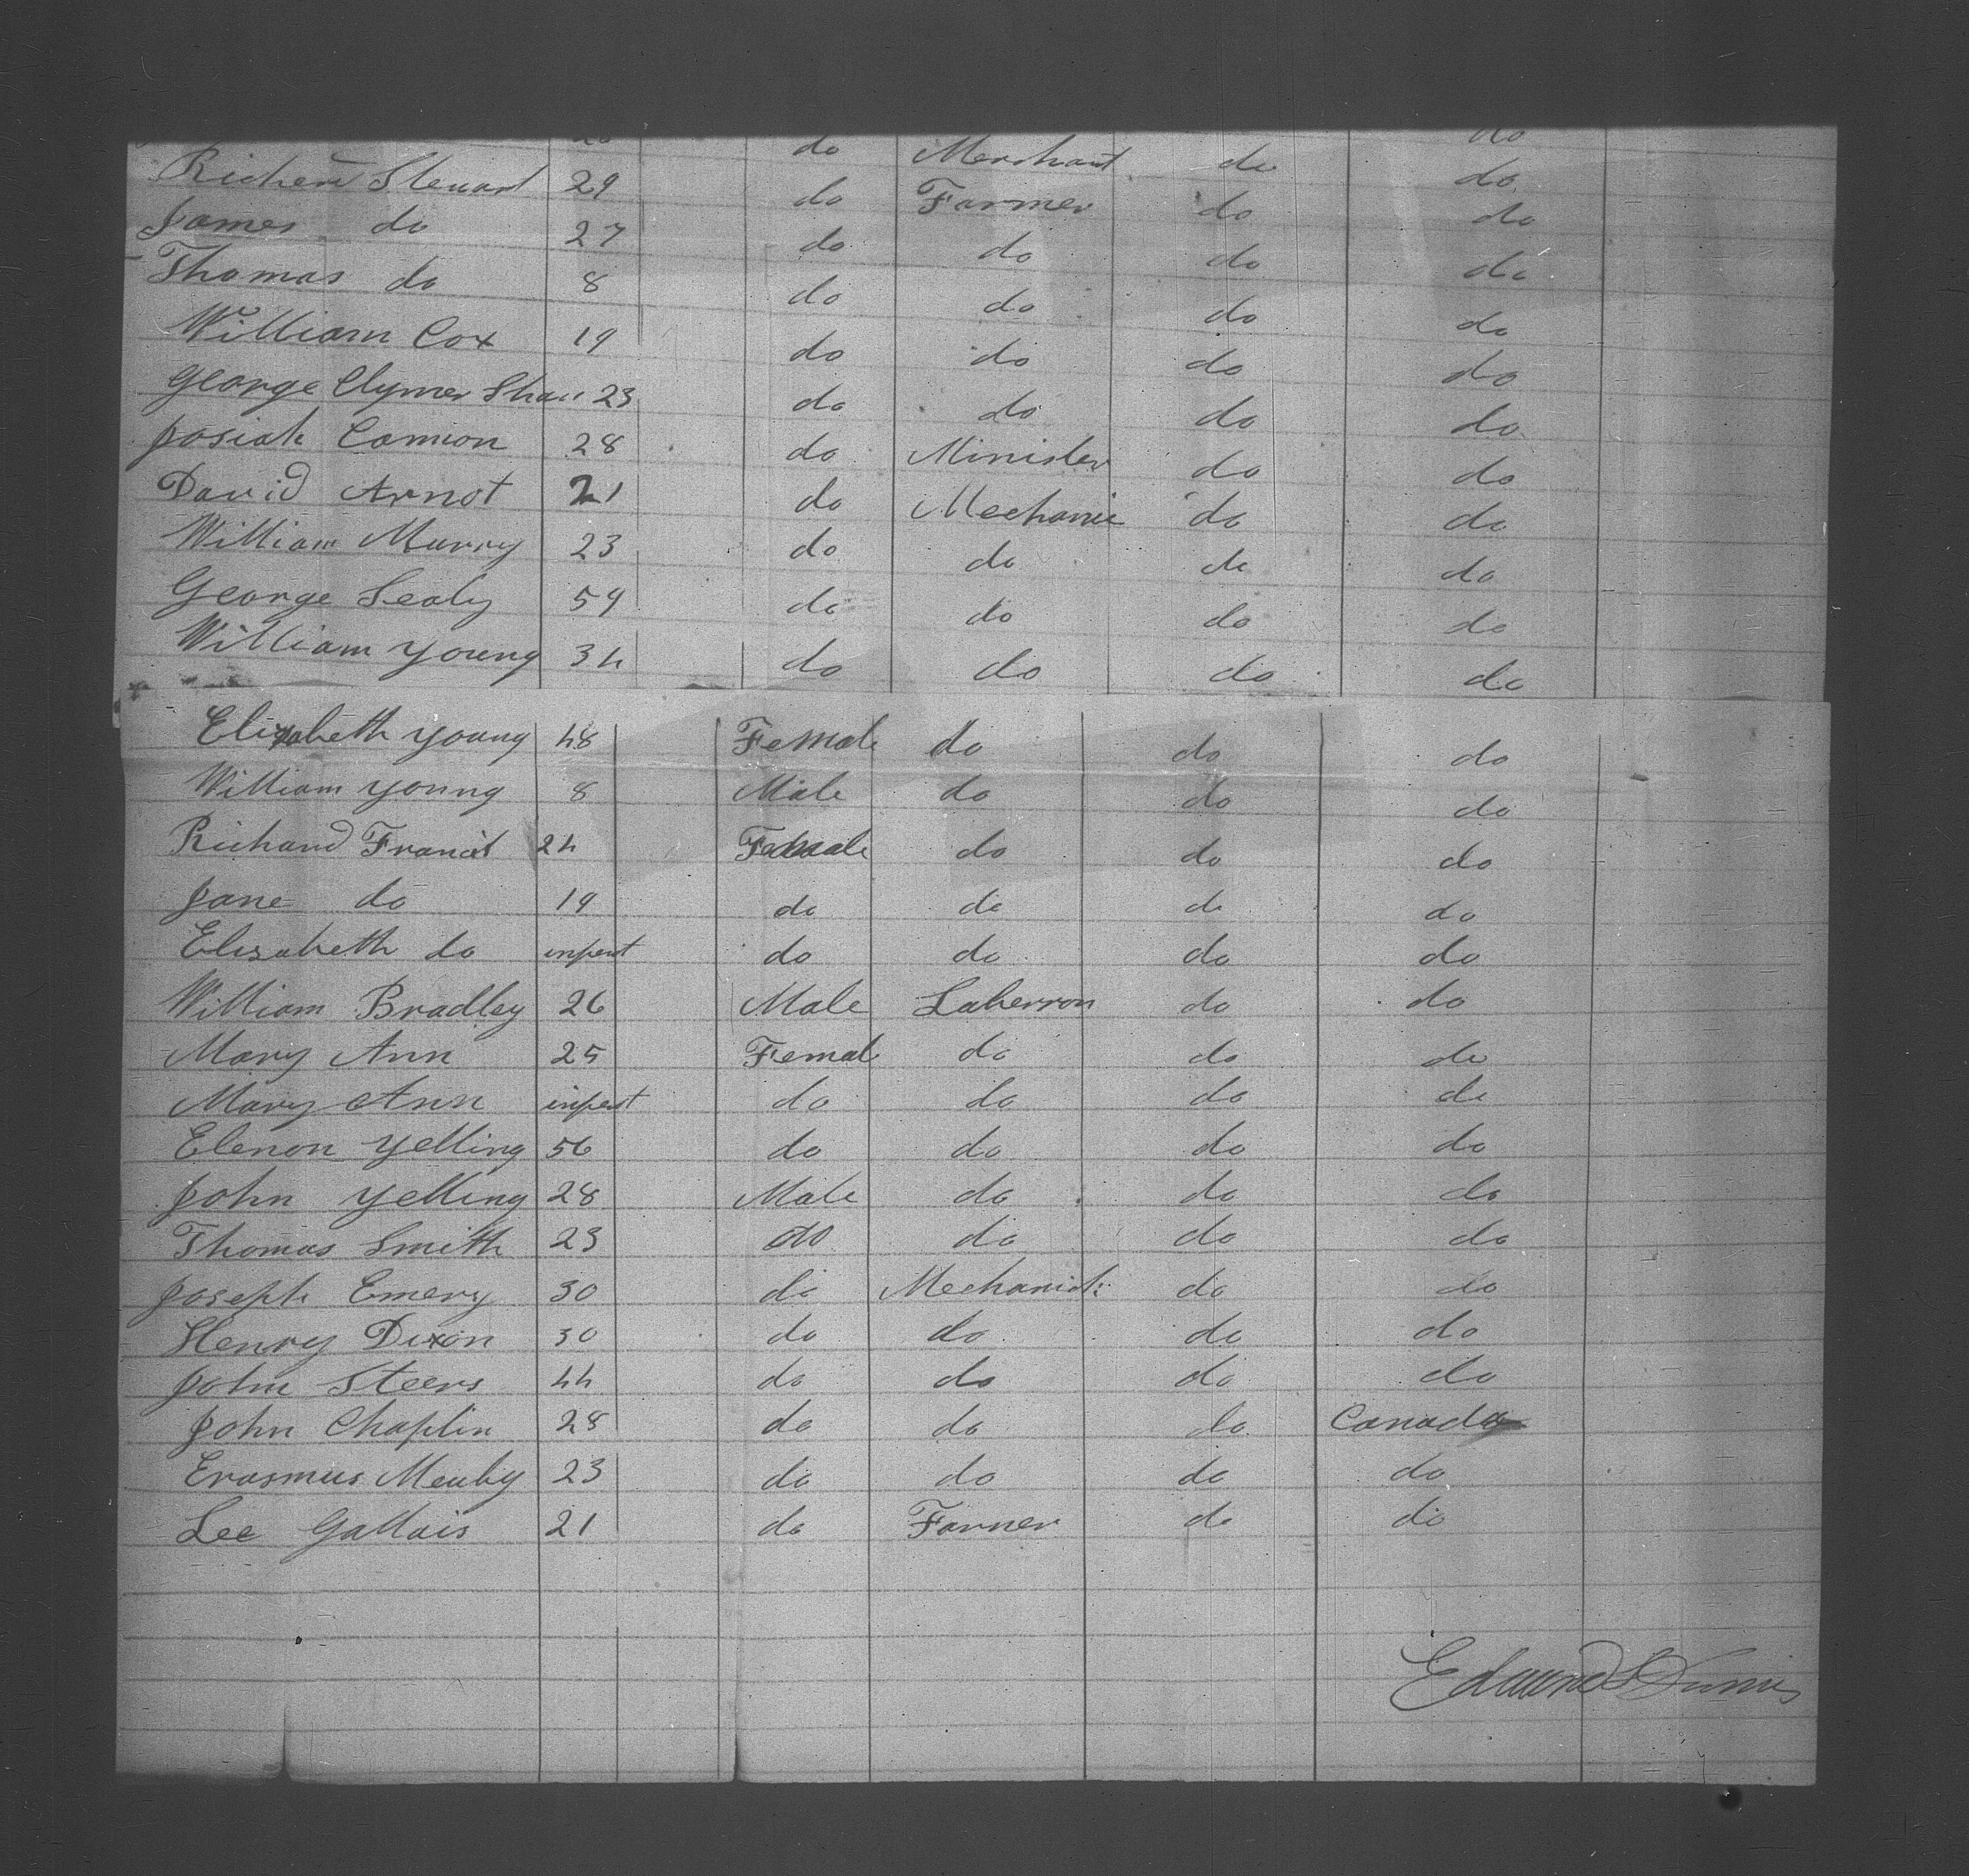 do Merchant do do
Richerd Stewart 29 do Farmer do do
James do 27 do do do do
Thomas do 8 do do do do
William Cox 19 do do do do
George Clymer Shaw 23 do do do do
Josiah Camion 28 do Minister do do
David Arnot 21 do Mechanic do do
William Murry 23 do do do do
George Sealy 59 do do do do
William Young 34 do do do do
Elizabeth Young 48 Female do do do
William Young 8 Male do do do
Richard Francis 24 Female do do do
Jane do 19 do do do do
Elisabeth do infent do do do do
William Bradley 26 Male Laberron do do
Mary Ann 25 Femal do do do
Mary Ann infent do do do do
Elenon Yelling 56 do do do do
John Yelling 28 Male do do do
Thomas Smith 23 do do do do
Joseph Emery 30 do Mechanick do do
Henry Dixon 30 do do do do
John Steers 44 do do do do
John Chaplin 28 do do do Canada
Erasmus Meuby 23 do do do do
Lee Gallais 21 do Farner do do
Edmund